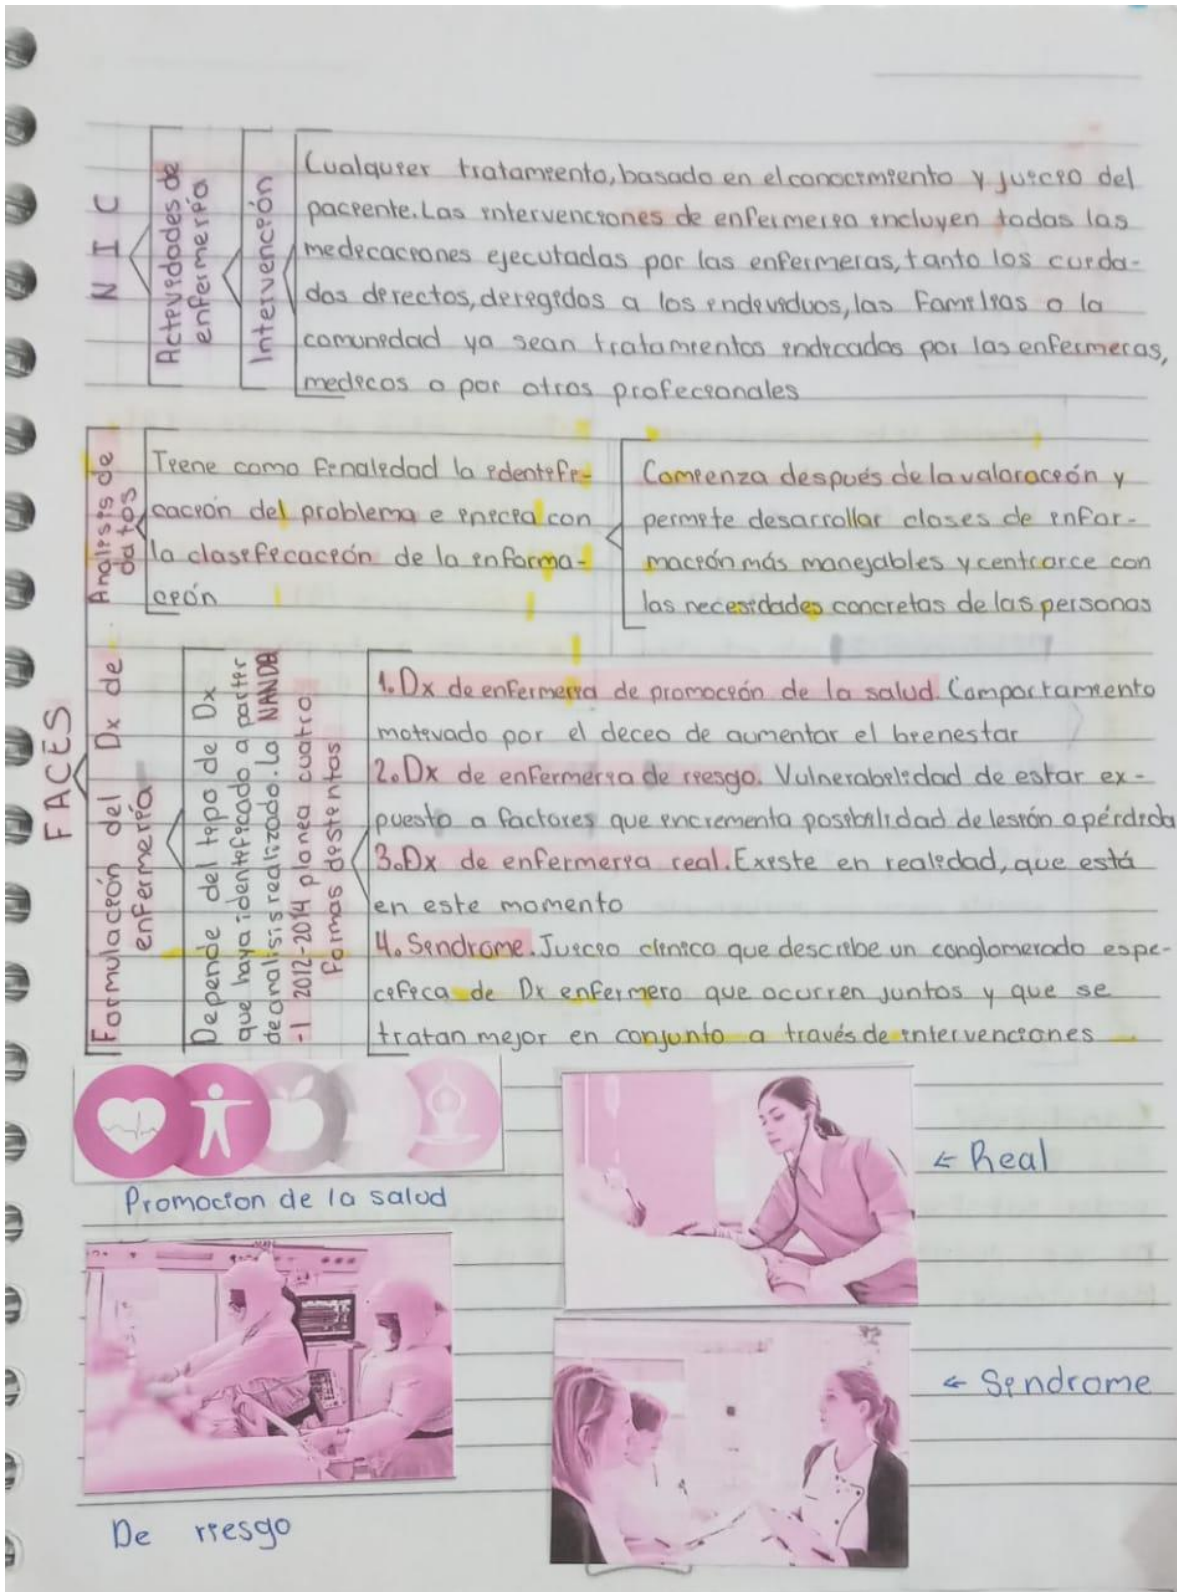 N I C
Actividades de
enfermería
Intervención
Cualquier tratamiento, basado en el conocimiento y juicio del
paciente. Las intervenciones de enfermeria incluyen todas las
medicaciones ejecutadas por las enfermeras, tanto los cuida-
dos directos, deregidos a los individuos, las familias o la
comunidad ya sean tratamientos indicados por las enfermeras,
medicos o por otros profecionales
FACES
Analisis de
datos
Tiene como finalidad la identifi-
cación del problema e inicia con
la clasificación de la informa-
ción
Comienza después de la valoración y
permite desarrollar clases de infor-
mación más manejables y centrarce con
las necesidades concretas de las personas
Formulación del Dx de
enfermería
Depende del tipo de Dx
que haya identificado a partir
de analisis realizado. La NANDA
-I 2012-2014 planea cuatro
formas distintas
1. Dx de enfermeria de promoción de la salud. Comportamiento
motivado por el deceo de aumentar el bienestar
2. Dx de enfermeria de riesgo. Vulnerabilidad de estar ex-
puesto a factores que incrementa posibilidad de lesión o pérdida
3. Dx de enfermeria real. Existe en realidad, que está
en este momento
4. Sindrome. Juicio clinico que describe un conglomerado espe-
cifica de Dx enfermero que ocurren juntos y que se
tratan mejor en conjunto a través de intervenciones
Promocion de la salud
← Real
De riesgo
← Sindrome